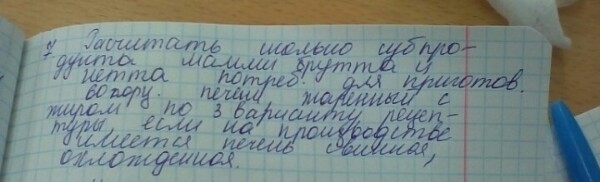 7 Расчитать сколько субпро-
дукта массы брутто и
нетто потреб. для приготов.
печени жаренный с
жиром по 3 варианту рецеп-
туры если на производстве
имеется печень свинная,
охложденная.